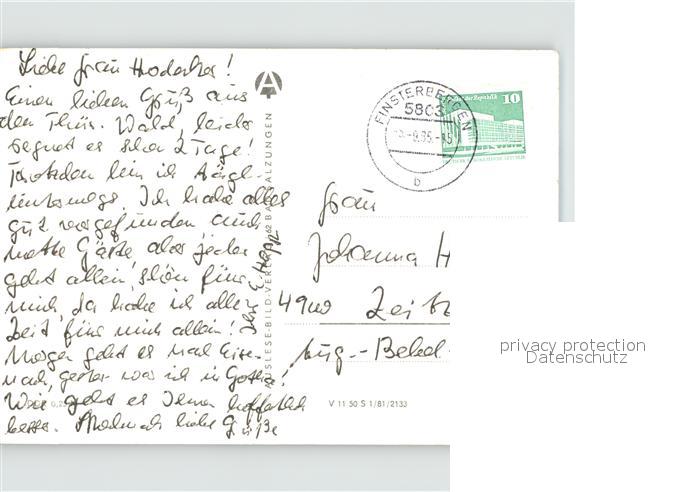 Liebe Frau
Einen lieben Gruß aus
den Thür. Wald, leider
regnet es schon 2 Tage!
Trotzdem bin ich tägl.
unterwegs. Ich habe alles
gut vorgefunden, auch
nette Gäste aber jeder
geht allein, schön für
mich, da habe ich alle
Zeit für mich allein!
Morgen geht es mal Eise-
nach, gestern war ich in Gotha!
Wie geht es Ihnen hoffentlich
besser. Nochmals liebe Grüße
Ihre E.
AUSLESE-BILD-VERLAG 62 BAD SALZUNGEN
V 11 50 S 1/81/2133
FINSTERBERGEN
5803
b
10
DEUTSCHE DEMOKRATISCHE REPUBLIK
Frau
Johanna H
4900 Zeitz
Aug.-Bebel-
privacy protection
Datenschutz